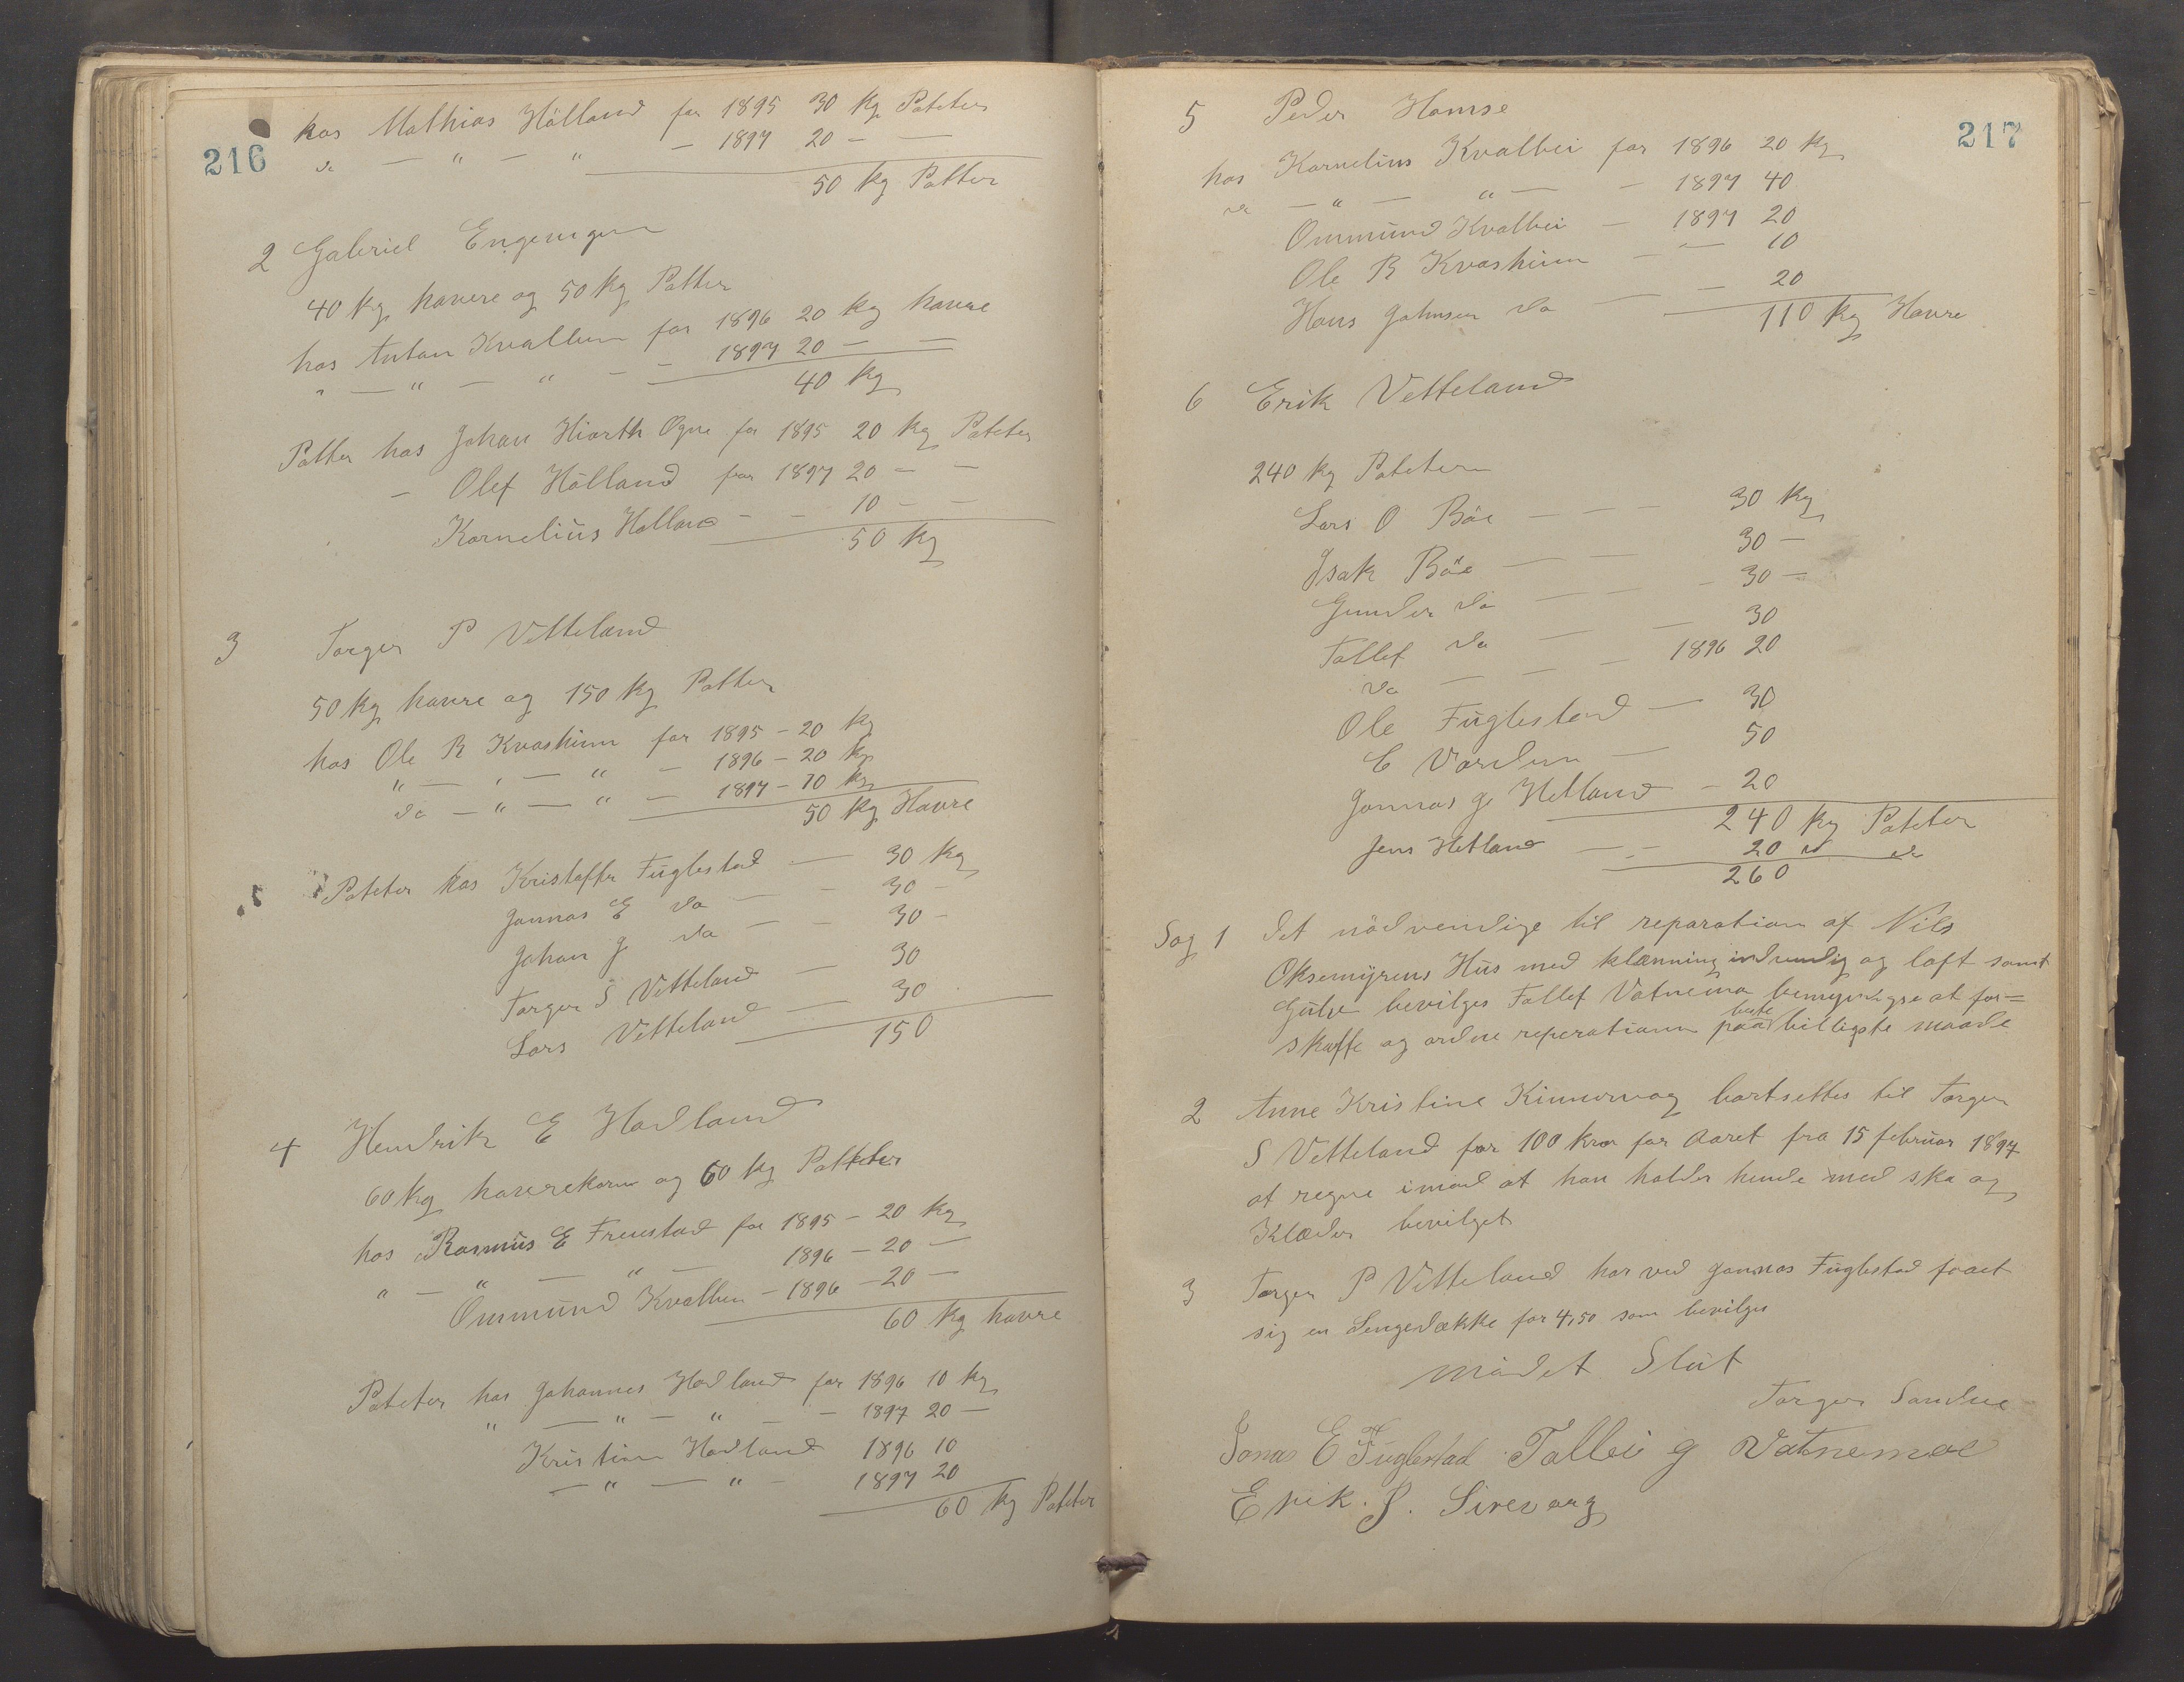 216
hos Mathias Hålland for 1895 30 kg Poteter
do — " — " — 1897 20 — —
50 kg Potter
2 Gabriel
40 kg havere og 50 kg Potter
hos Anton Kvalbein for 1896 20 kg havre
" — " — " — — 1897 20 — —
40 kg
Potter hos Johan Hiorth Ogne for 1895 20 kg Poteter
— Olef Hålland for 1897 20 — —
Kornelius Holland — — 10 — —
50 kg
3 Torger P Vetteland
50 kg havre og 150 kg Potter
hos Ole R Kvashiem for 1895 – 20 kg
" — " — " — 1896 – 20 kg
do — " — " — 1897 – 10 kg
50 kg Havre
Poteter hos Kristoffer Fuglestad — 30 kg
Jonnas E do — — 30 –
Johan J do — — 30 –
Torger S Vetteland — 30
Lars Vetteland — 30
150
4 Hendrik E Hodland
60 kg haverekorn og 60 kg Potteter
hos Rasmus E Fruestad for 1895 – 20 kg
" — " — " — 1896 – 20 —
Ommund Kvalbein – 1896 – 20 —
60 kg havre
Poteter hos Johannes Hodland for 1896 10 kg
" — " — " — — 1897 20 —
Kristine Hodland 1896 10
— " — " — 1897 20
60 kg Poteter
217
5 Peder Homse
hos Kornelius Kvalbei for 1896 20 kg
do — " — " — — 1897 40
Ommund Kvalbei — 1897 20
Ole R Kvashiem — — 10
Hans Johnsen do — — 20
110 kg Havre
6 Erik Vetteland
240 kg Poteter
Lars O Böe — — — 30 kg
Isak Böe — — 30 —
Gunder do — — – 30 —
Tollef do — — 30
do — — — 1896 20
Ole Fuglestad — 30
E — 50
Jonnas G Hetland – 20
240 kg Poteter
Jens Hetland — – 20 " do
260
Sag 1 Det nödvendige til reparation af Nils
Oksemyrens Hus med klænning indvendig og loft samt
Gulve bevilges Tollef Vatnemo bemyndiges at for=
skaffe og ordne reperationen paa beste billigste maade
2 Anne Kristine bortsettes til Torger
S Vetteland for 100 kror for Aaret fra 15 februar 1897
at regne imod at han holder hende med sko og
Klæder bevilget
3 Torger P Vetteland har ved Jonnas Fuglestad faaet
sig en Sengedække for 4,50 som bevilges
mödet Slut
Torger Sandve
Jonas E Fuglestad Tollei G Vatnemoe
Erik. J. Sirevaag